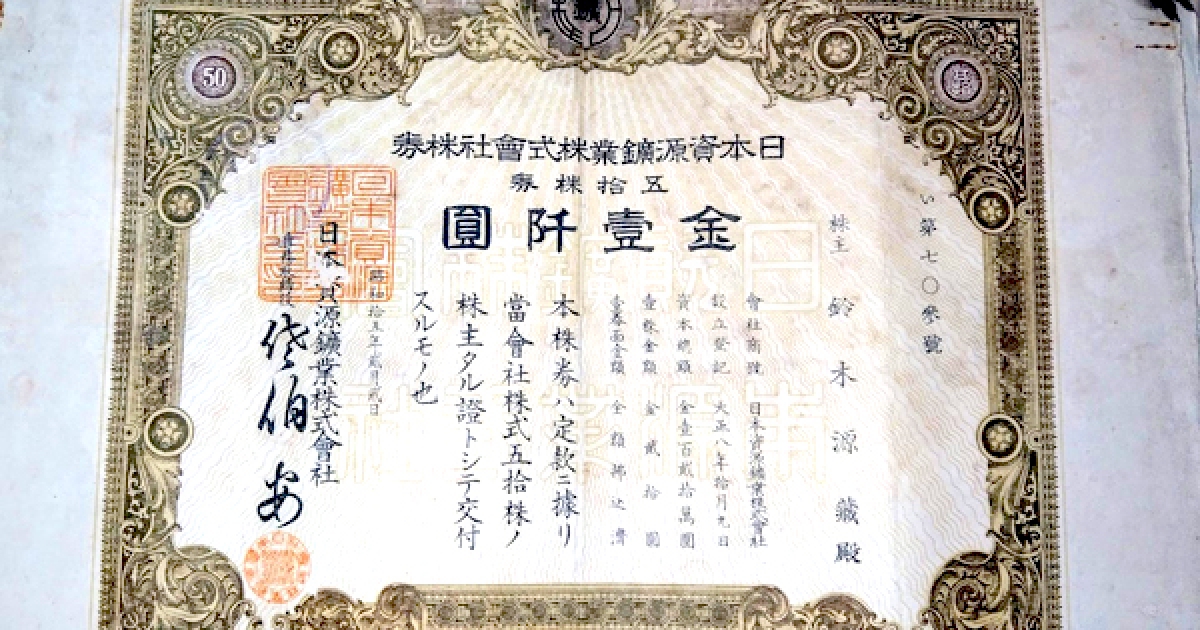 50
日本資源鑛業株式會社株券
五拾株券
金壹阡圓
い第七〇參號
株主 鈴木源藏殿
會社商號 日本資源鑛業株式會社
設立登記 大正八年拾月九日
資本總額 金壹百貳拾萬圓
壹株金額 金貳拾圓
全額拂込濟
本株券ハ定款ニ據リ
當會社株式五拾株ノ
株主タル證トシテ交付
スルモノ也
昭和拾五年貳月貳日
日本資源鑛業株式會社